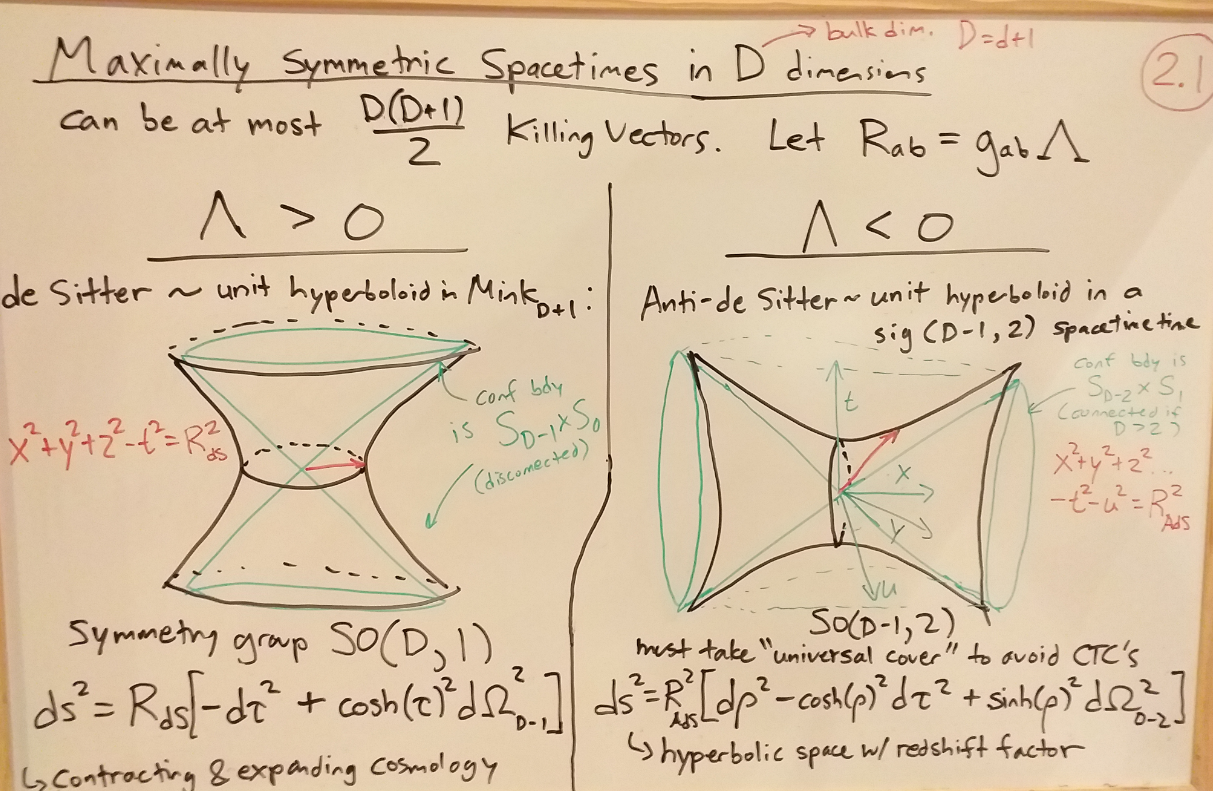 Maximally Symmetric Spacetimes in D dimensions
→ bulk dim. D=d+1
2.1
can be at most D(D+1)/2 Killing Vectors. Let Rab = gab Λ
Λ > 0
de Sitter ~ unit hyperboloid in Mink_D+1 :
conf bdy
is S_D-1 × S_0
(disconnected)
x²+y²+z²-t²=R²_dS
Symmetry group SO(D,1)
ds² = R_dS[-dτ² + cosh(τ)² dΩ²_D-1]
↳ contracting & expanding cosmology
Λ < 0
Anti-de Sitter ~ unit hyperboloid in a
sig (D-1, 2) spacetimetime
conf bdy is
S_D-2 × S_1
(connected if
D>2)
x²+y²+z²...
-t²-u²=R²_AdS
t
x
y
u
SO(D-1,2)
must take "universal cover" to avoid CTC's
ds²=R²_AdS[dρ²-cosh(ρ)²dτ² + sinh(ρ)²dΩ²_D-2]
↳ hyperbolic space w/ redshift factor